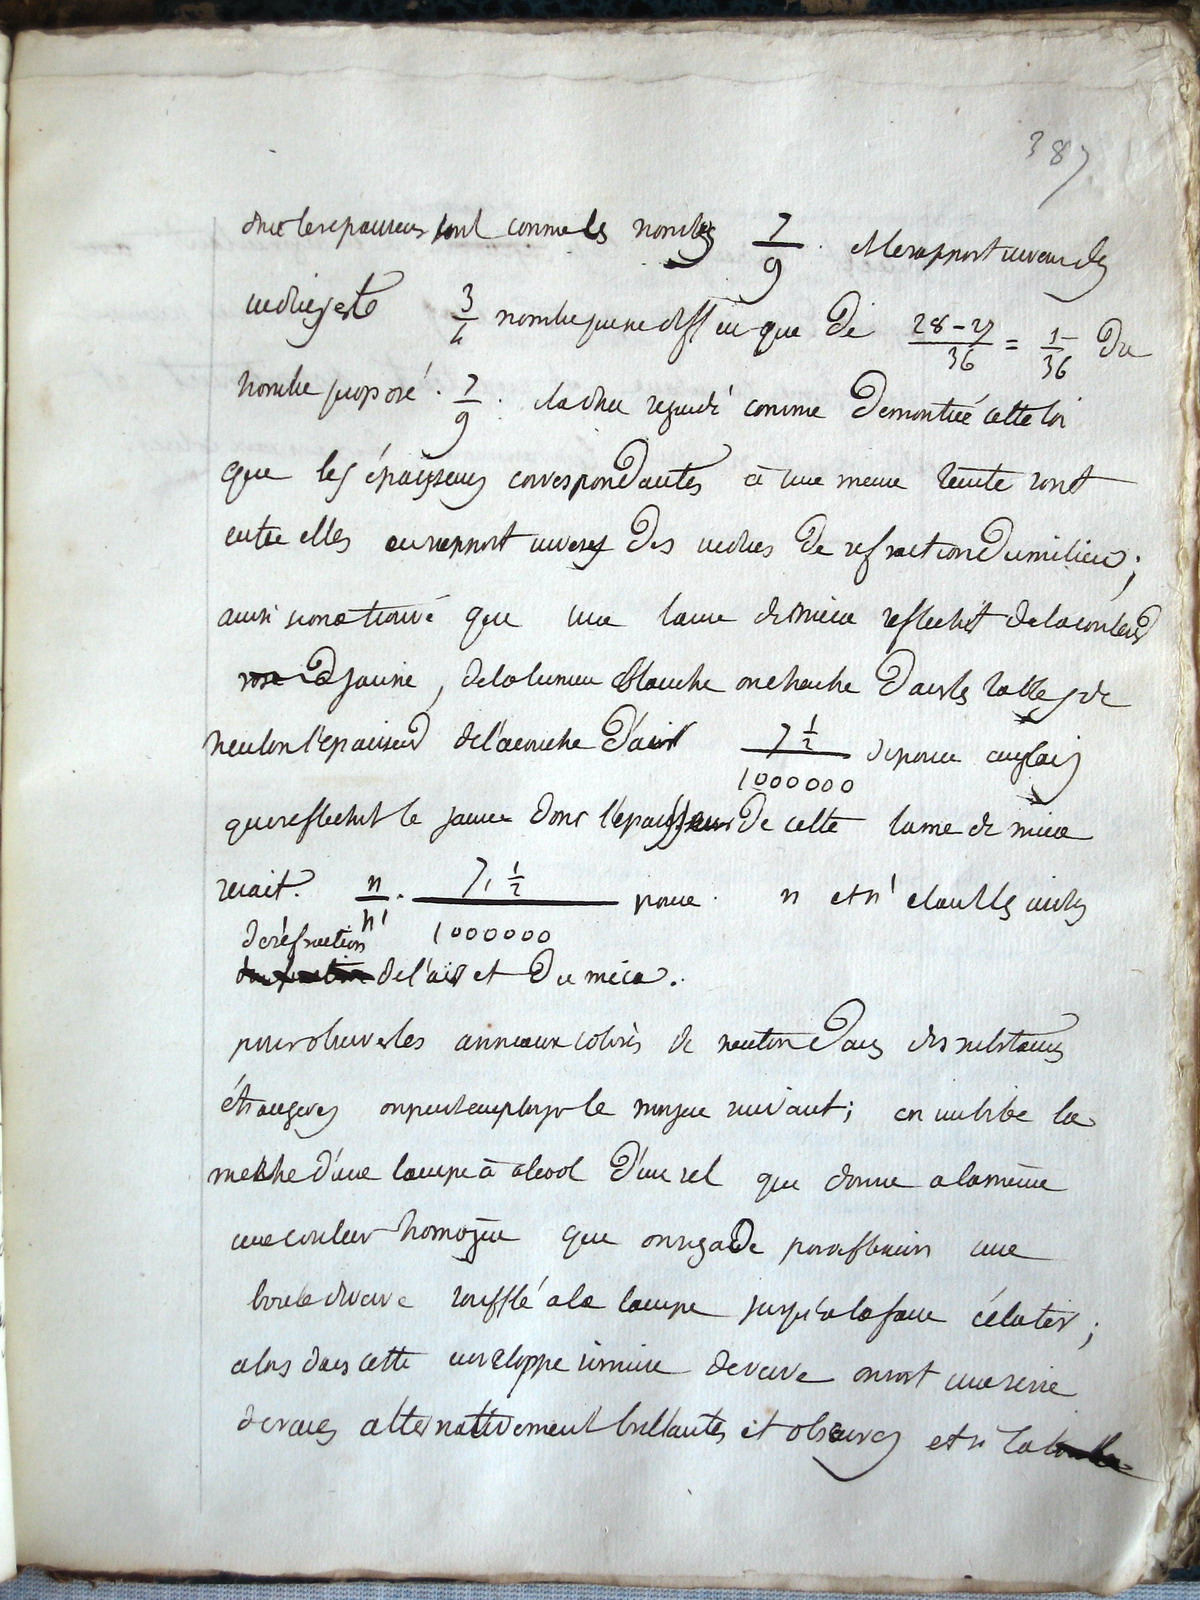 387
donc les epaisseurs sont comme les nombres 7/9. et le rapport inverse des
indices est de 3/4 nombre qui ne diffère que de (28-27)/36 = 1/36 du
nombre proposé. 7/9. il a donc regardé comme demontrée cette loi
que les épaisseurs correspondantes à une meme teinte sont
entre elles en rapport inverse des indices de refraction du milieu;
ainsi si on a trouvé que une lame de mica reflechit de la couleur
jaune, de la lumiere blanche on cherche dans les tables de
neuton l'epaisseur de la couche d'air 7 1/2 / 1000000 de pouce anglais
qui reflechit le jaune donc l'épaisseur de cette lame de mica
serait. n/n' . 7, 1/2 / 1000000 pouce. n et n' etant les indices
de réfraction
de l'air et du mica.
pour observer les anneaux colorés de neuton dans des substances
étrangeres on peut employer le moyen suivant; on imbibe la
meche d'une lampe à alcool d'un sel que donne a la même
une couleur homogène que on regarde par reflexion une
boule de verre soufflé a la lampe jusqu'a la faire éclater;
alors dans cette enveloppe si mince de verre on voit une serie
de raies alternativement brillantes et obscures et si la